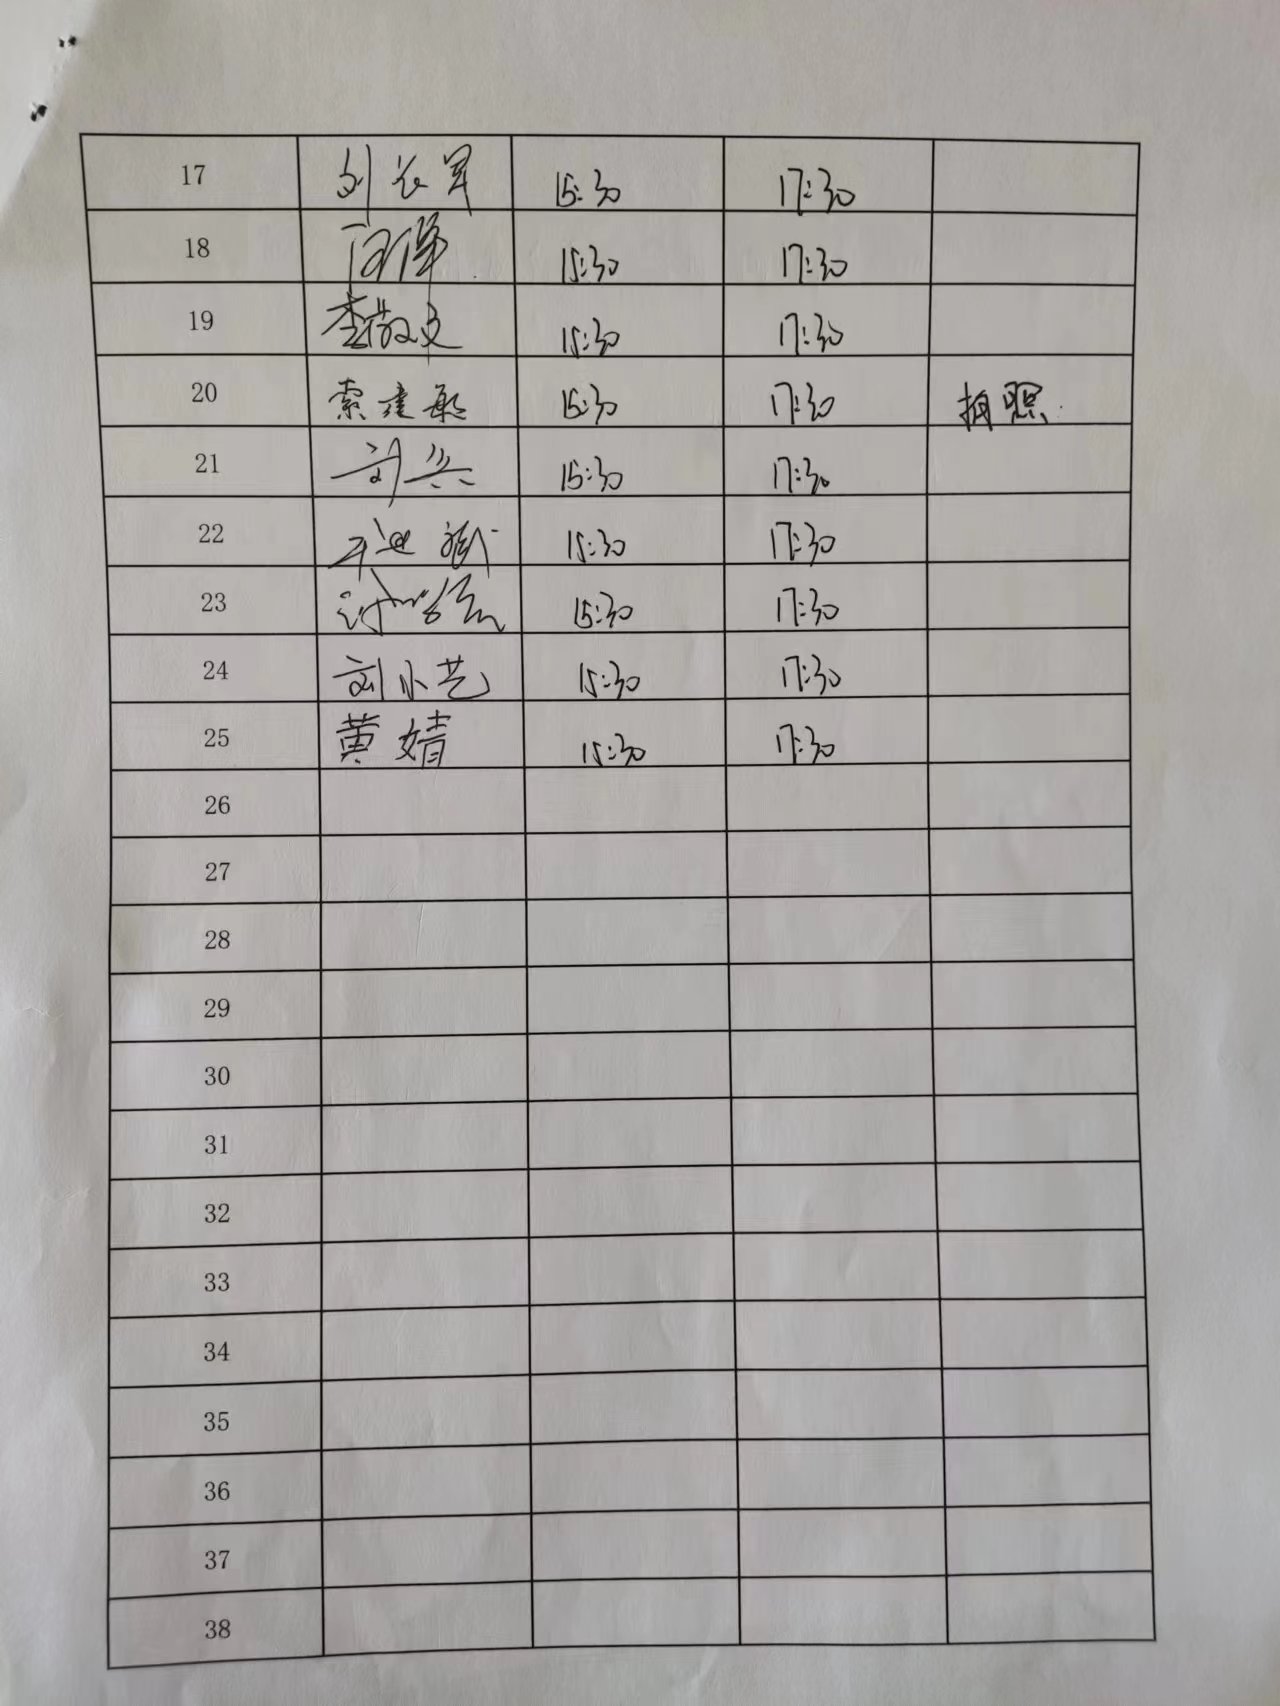 17 刘长军 15:30 17:30
18 15:30 17:30
19 李敬文 15:30 17:30
20 索建敏 15:30 17:30 拍照
21 刘兵 15:30 17:30
22 15:30 17:30
23 15:30 17:30
24 刘小艺 15:30 17:30
25 黄婧 15:30 17:30
26
27
28
29
30
31
32
33
34
35
36
37
38